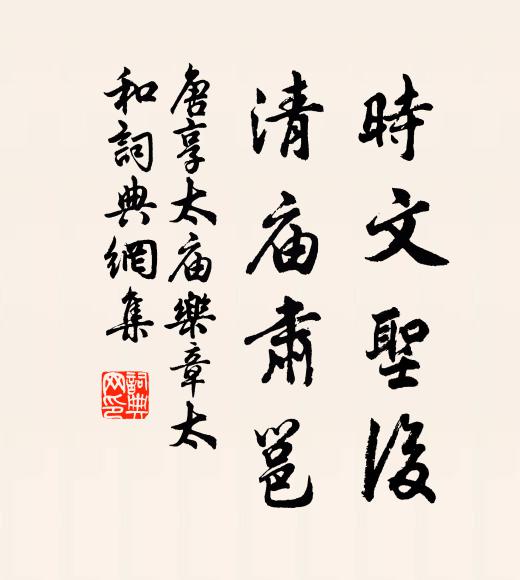 時文聖後
清庙肅邕
唐享太庙樂章太
和詞典網集
詞典
网印